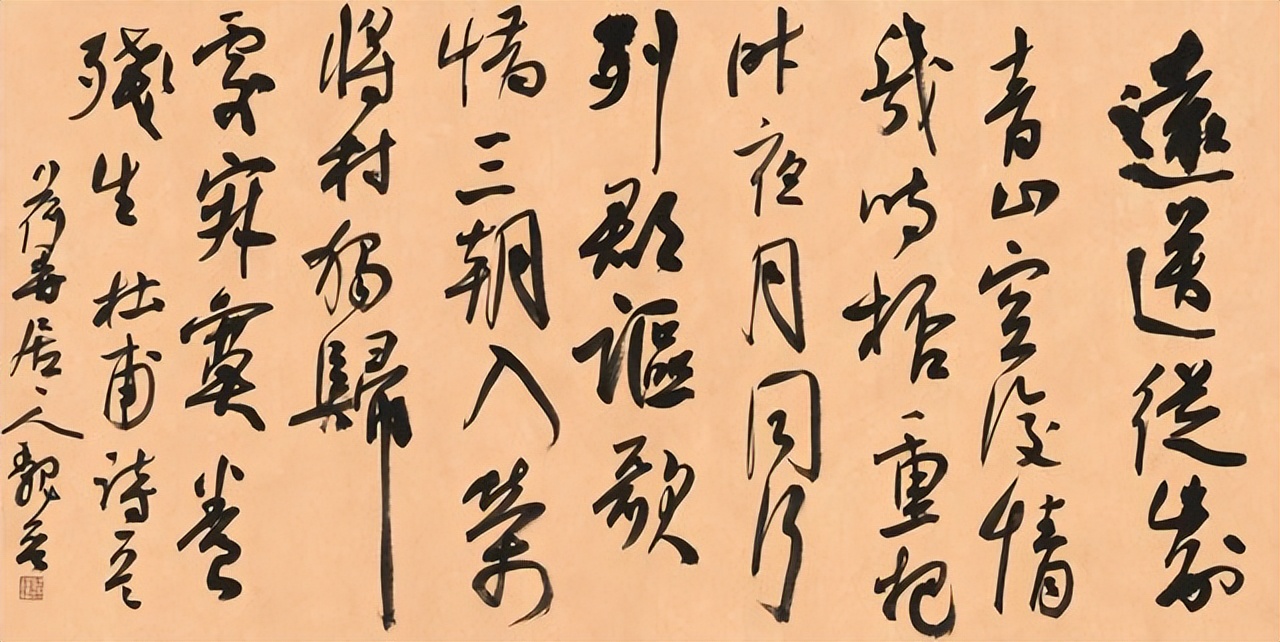 遠送從此別
青山空復情
幾時杯重把
昨夜月同行
列郡謳歌
惜三朝入榮
將村獨歸
處寂寞養
殘生 杜甫詩
荷居人